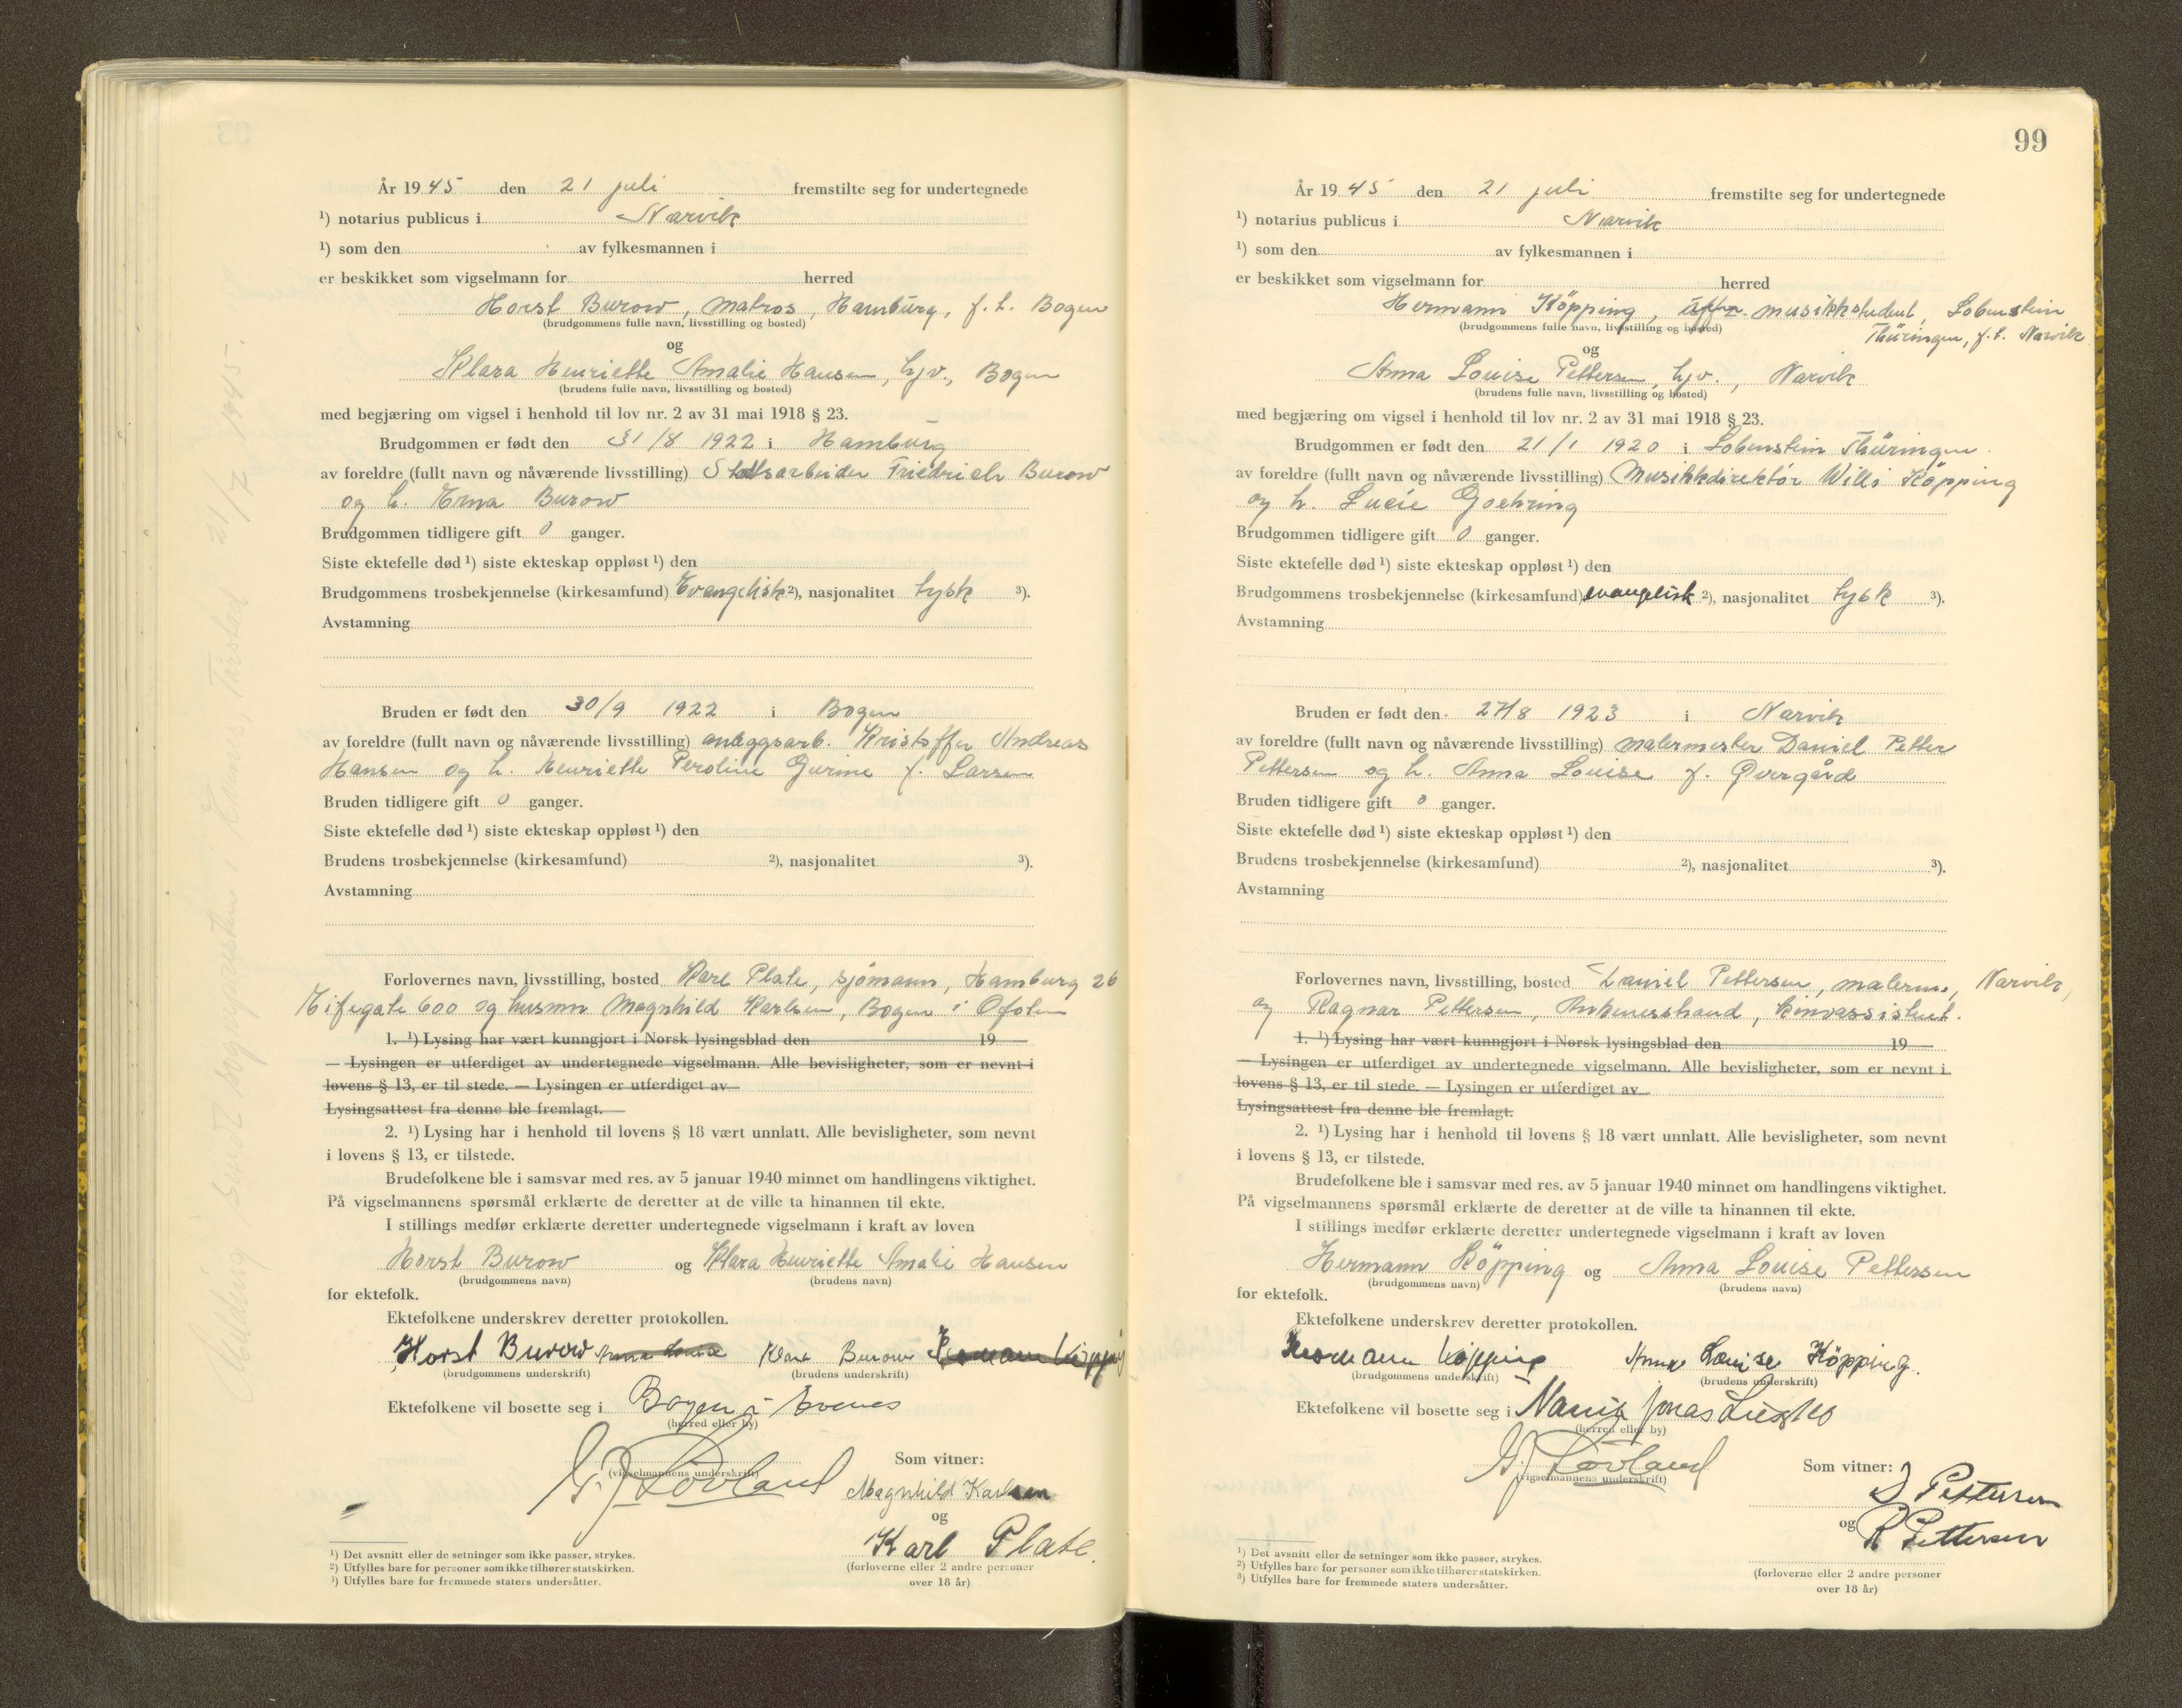 År 19 45 den 21 juli fremstilte seg for undertegnede
¹) notarius publicus i Narvik
¹) som den av fylkesmannen i
er beskikket som vigselmann for herred
Horst Burow, matros, Hamburg, f. t. Bogen
(brudgommens fulle navn, livsstilling og bosted)
og
Klara Henriette Amalie Hansen, hjv., Bogen
(brudens fulle navn, livsstilling og bosted)
med begjæring om vigsel i henhold til lov nr. 2 av 31 mai 1918 § 23.
Brudgommen er født den 31/8 1922 i Hamburg
av foreldre (fullt navn og nåværende livsstilling) Friedrich Burow
og h. Erna Burow
Brudgommen tidligere gift 0 ganger.
Siste ektefelle død ¹) siste ekteskap oppløst ¹) den
Brudgommens trosbekjennelse (kirkesamfund) Evangelisk ²), nasjonalitet tysk ³).
Avstamning
Bruden er født den 30/9 1922 i Bogen
av foreldre (fullt navn og nåværende livsstilling) anleggsarb. Kristoffer Andreas
Hansen og h. Henriette Peroline Gurine f. Larsen
Bruden tidligere gift 0 ganger.
Siste ektefelle død ¹) siste ekteskap oppløst ¹) den
Brudens trosbekjennelse (kirkesamfund) ²), nasjonalitet ³).
Avstamning
Forlovernes navn, livsstilling, bosted Karl Plate, sjømann, Hamburg 26
600 og husmor Magnhild Karlsen, Bogen i Ofoten
1. ¹) Lysing har vært kunngjort i Norsk lysingsblad den 19
— Lysingen er utferdiget av undertegnede vigselmann. Alle bevisligheter, som er nevnt i
lovens § 13, er til stede. — Lysingen er utferdiget av
Lysingsattest fra denne ble fremlagt.
2. ¹) Lysing har i henhold til lovens § 18 vært unnlatt. Alle bevisligheter, som nevnt
i lovens § 13, er tilstede.
Brudefolkene ble i samsvar med res. av 5 januar 1940 minnet om handlingens viktighet.
På vigselmannens spørsmål erklærte de deretter at de ville ta hinannen til ekte.
I stillings medfør erklærte deretter undertegnede vigselmann i kraft av loven
Horst Burow og Klara Henriette Amalie Hansen
(brudgommens navn) (brudens navn)
for ektefolk.
Ektefolkene underskrev deretter protokollen.
Horst Burow Anna Louise Klara Burow Hermann Köpping
(brudgommens underskrift) (brudens underskrift)
Ektefolkene vil bosette seg i Bogen i Evenes
(herred eller by)
G. J. Løvland
(vigselmannens underskrift)
Som vitner:
Magnhild Karlsen
og
Karl Plate.
(forloverne eller 2 andre personer
over 18 år)
¹) Det avsnitt eller de setninger som ikke passer, strykes.
²) Utfylles bare for personer som ikke tilhører statskirken.
³) Utfylles bare for fremmede staters undersåtter.
Melding sendt sognepresten i 21/7 1945.
99
År 19 45 den 21 juli fremstilte seg for undertegnede
¹) notarius publicus i Narvik
¹) som den av fylkesmannen i
er beskikket som vigselmann for herred
Hermann Köpping, musikkstudent, Lobenstein
(brudgommens fulle navn, livsstilling og bosted)
Thüringen, f. t. Narvik
og
Anna Louise Pettersen, hjv., Narvik
(brudens fulle navn, livsstilling og bosted)
med begjæring om vigsel i henhold til lov nr. 2 av 31 mai 1918 § 23.
Brudgommen er født den 21/1 1920 i Lobenstein Thüringen
av foreldre (fullt navn og nåværende livsstilling) Musikkdirektør Willi Köpping
og h. Lucie Goehring
Brudgommen tidligere gift 0 ganger.
Siste ektefelle død ¹) siste ekteskap oppløst ¹) den
Brudgommens trosbekjennelse (kirkesamfund) evangelisk ²), nasjonalitet tysk ³).
Avstamning
Bruden er født den 27/8 1923 i Narvik
av foreldre (fullt navn og nåværende livsstilling) malermester Daniel Petter
Pettersen og h. Anna Louise f. Øvergård
Bruden tidligere gift 0 ganger.
Siste ektefelle død ¹) siste ekteskap oppløst ¹) den
Brudens trosbekjennelse (kirkesamfund) ²), nasjonalitet ³).
Avstamning
Forlovernes navn, livsstilling, bosted Daniel Pettersen, malerm., Narvik,
og Ragnar Pettersen, Ankenesstrand, kinoassistent.
1. ¹) Lysing har vært kunngjort i Norsk lysingsblad den 19
— Lysingen er utferdiget av undertegnede vigselmann. Alle bevisligheter, som er nevnt i
lovens § 13, er til stede. — Lysingen er utferdiget av
Lysingsattest fra denne ble fremlagt.
2. ¹) Lysing har i henhold til lovens § 18 vært unnlatt. Alle bevisligheter, som nevnt
i lovens § 13, er tilstede.
Brudefolkene ble i samsvar med res. av 5 januar 1940 minnet om handlingens viktighet.
På vigselmannens spørsmål erklærte de deretter at de ville ta hinannen til ekte.
I stillings medfør erklærte deretter undertegnede vigselmann i kraft av loven
Hermann Köpping og Anna Louise Pettersen
(brudgommens navn) (brudens navn)
for ektefolk.
Ektefolkene underskrev deretter protokollen.
Hermann Köpping Anna Louise Köpping.
(brudgommens underskrift) (brudens underskrift)
Ektefolkene vil bosette seg i Narvik Jonas Liesgt
(herred eller by)
G. J. Løvland
(vigselmannens underskrift)
Som vitner:
D Pettersen
og R Pettersen
(forloverne eller 2 andre personer
over 18 år)
¹) Det avsnitt eller de setninger som ikke passer, strykes.
²) Utfylles bare for personer som ikke tilhører statskirken.
³) Utfylles bare for fremmede staters undersåtter.